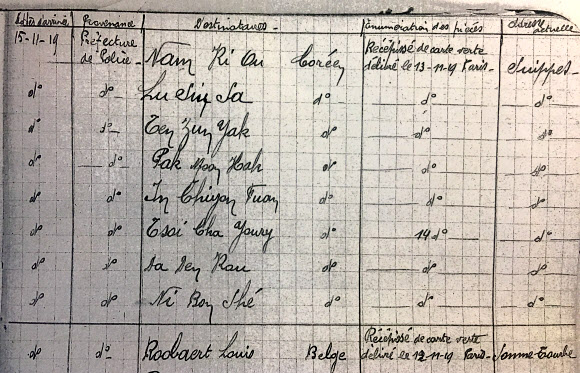 Dates d'arrivée Provenance Destinataires Énumération des pièces Adresse actuelle
15-11-19 Préfecture de Police Nam Ki On Coréen Récépissé de carte verte délivré le 13-11-19 Paris- Suippes
d° d° Lu Sin Sa d° d° d°
d° d° Ten Zun Yak d° d° d°
d° d° Pak Moon Hah d° d° d°
d° d° In Chiyon Fuan d° d° d°
d° d° Tsoi Cha Youry d° 14 d° d°
d° d° Da Den Rau d° d° d°
d° d° Ni Bon Shé d° d° d°
d° d° Roobaert Louis Belge Récépissé de carte verte délivré le 12-11-19 Paris- Somme-Tourbe